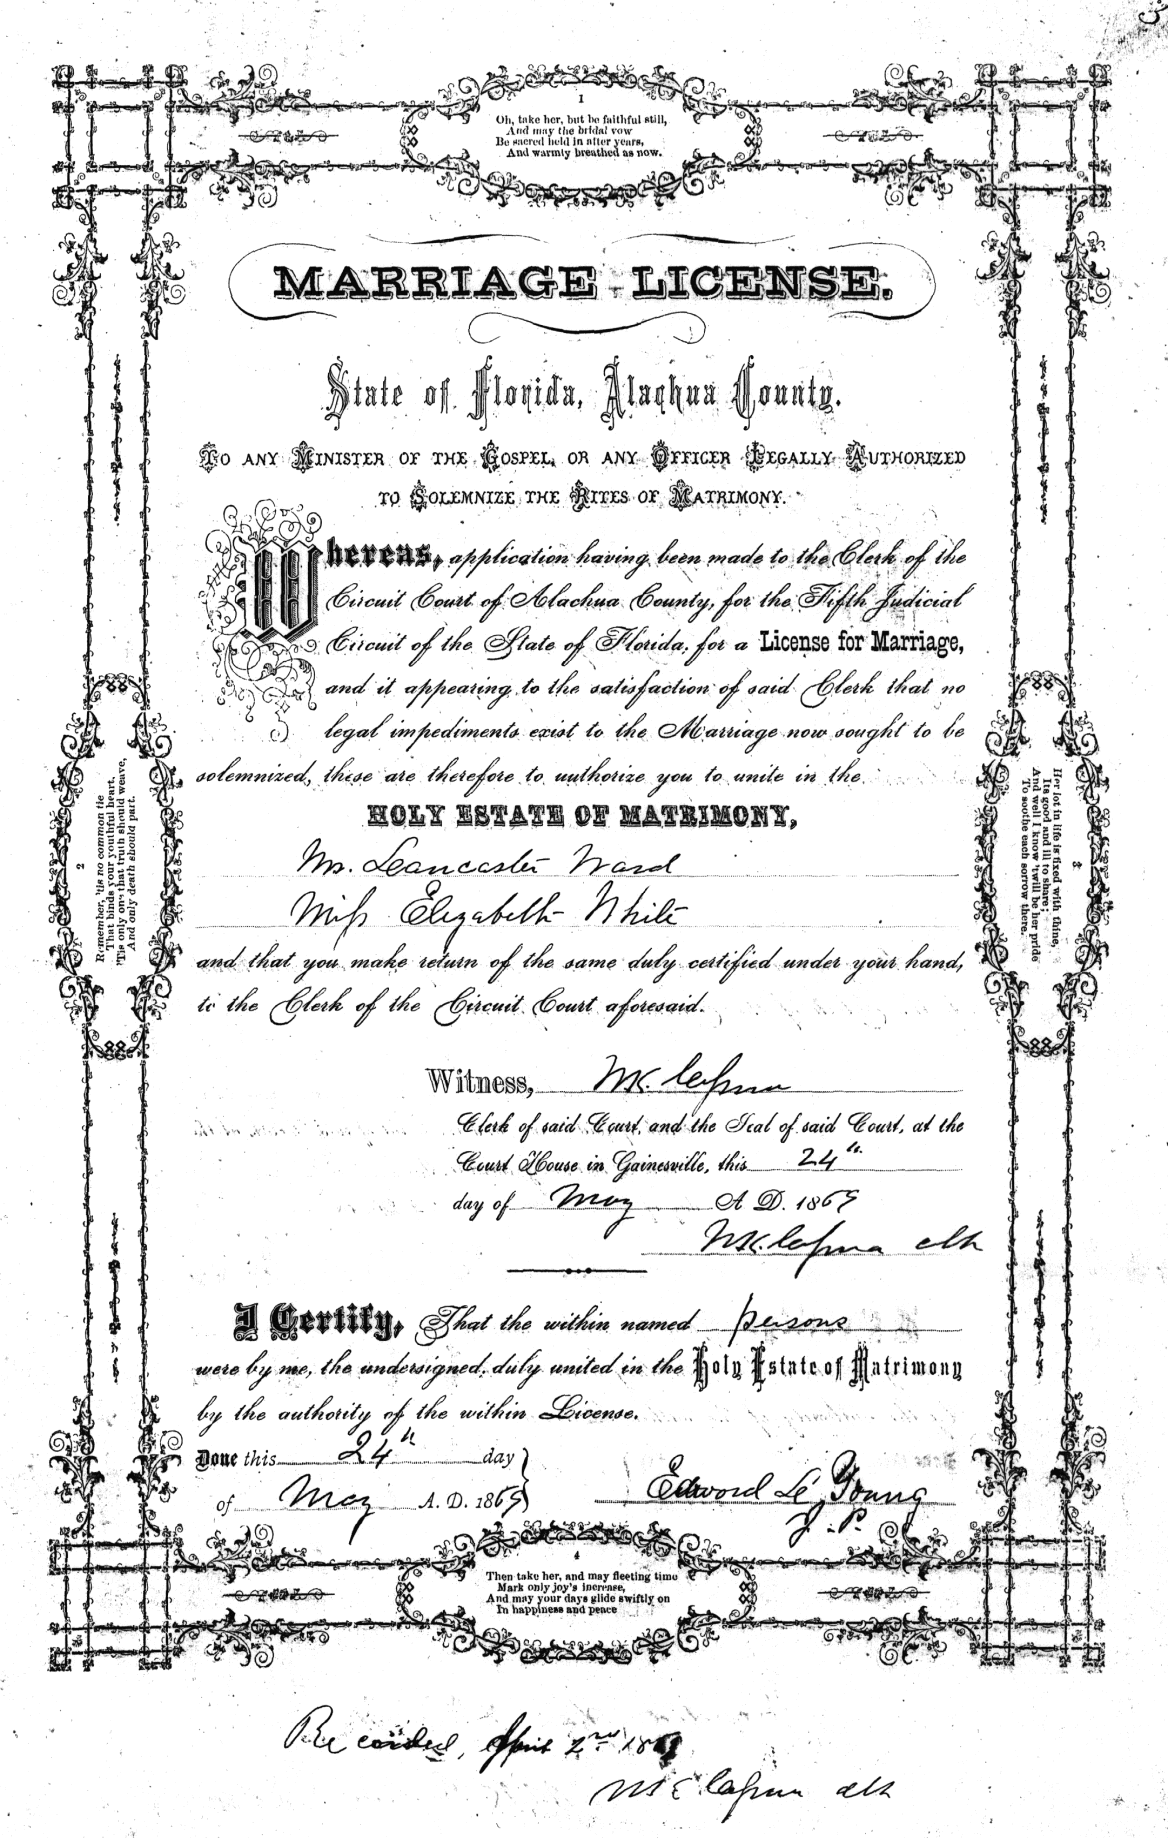 1
Oh, take her, but be faithful still,
And may the bridal vow
Be sacred held in after years,
And warmly breathed as now.
MARRIAGE LICENSE.
State of Florida, Alachua County.
TO ANY MINISTER OF THE GOSPEL, OR ANY OFFICER LEGALLY AUTHORIZED
TO SOLEMNIZE THE RITES OF MATRIMONY.
Whereas, application having been made to the Clerk of the
Circuit Court of Alachua County, for the Fifth Judicial
Circuit of the State of Florida, for a License for Marriage,
and it appearing to the satisfaction of said Clerk that no
legal impediments exist to the Marriage now sought to be
solemnized, these are therefore to authorize you to unite in the
HOLY ESTATE OF MATRIMONY,
Mr. Leancaster Ward
Miss Elizabeth White
and that you make return of the same duly certified under your hand,
to the Clerk of the Circuit Court aforesaid.
Witness,
Clerk of said Court, and the Seal of said Court, at the
Court House in Gainesville, this 24th
day of May A D. 1869
clk
I Certify, That the within named persons
were by me, the undersigned, duly united in the Holy Estate of Matrimony
by the authority of the within License.
Done this 24th day
of May A. D. 1869
Edword Le Young
J. P.
2
Remember, 'tis no common tie
That binds your youthful heart,
'Tis only one that truth should weave,
And only death should part.
3
Her lot in life is fixed with thine,
Its good and ill to share;
And well I know 'twill be her pride
To soothe each sorrow there.
4
Then take her, and may fleeting time
Mark only joy's increase,
And may your days glide swiftly on
In happiness and peace
Recorded, April 2nd
clk